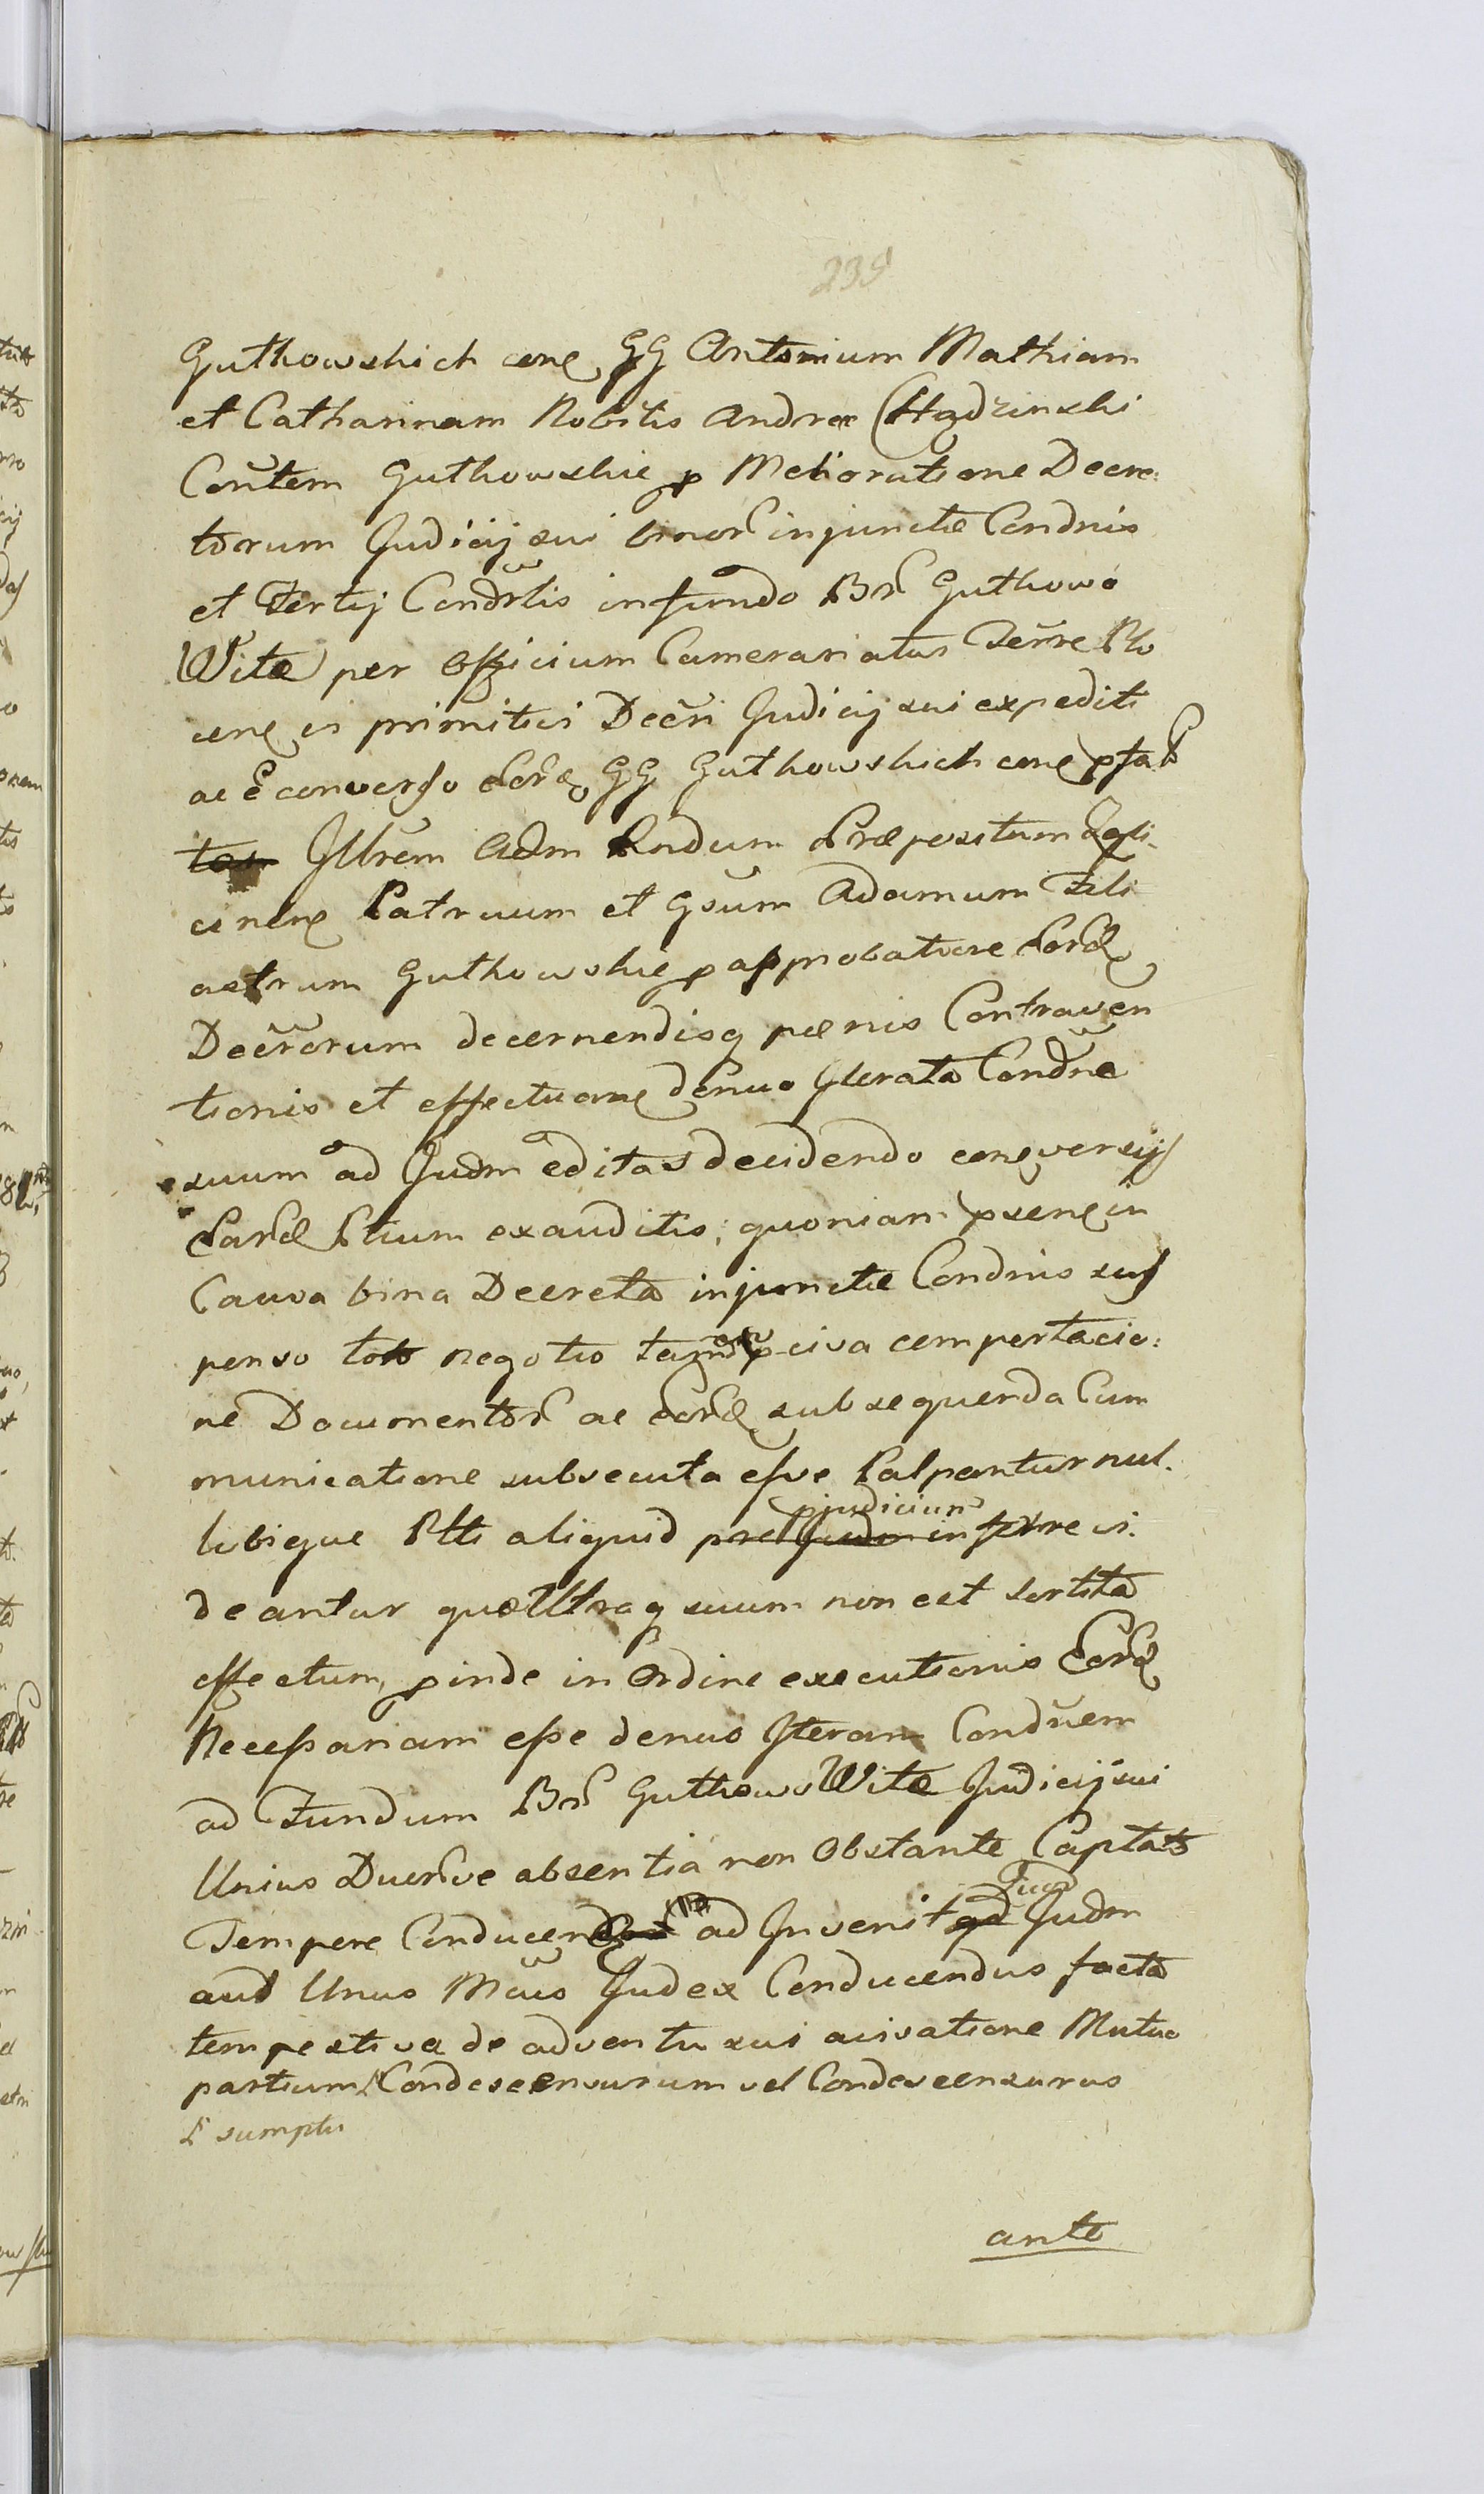 239
Gutkowskich cene GG Antonium Mathiam
et Catharinam Nobilis Andreæ Chądzinski
Coñtem Gutkowskie p Melioratione Decre:
torum Judicij sui binor injunctæ Condnis
et Tertij Condrtis in fundo Br Gutkowo
Witæ per Officium Camerariatus Terre Plo
cene vi primitivi Decri Judicij sui expediti
ac E converso Eord GG Gutkowskich cene pfat
Jllrem Adm Rndum Præpositum
cinene Patruum et Gsum Adamum Fili
astrum Gutkowskie p approbatione Eord
Decrorum decernendisq pænis Contraven
tionis et effectuone denuo Jterata Condne
suum ad Judm editas decidendo conversijs
Eard Ptium exauditis; quoniam psene in
Causa bina Decreta injunctæ Condnis sus
penso toto negotio comportacio:
ne Documentor ac Eord subsequenda Com
municatione subsecuta esse Palpantur nul.
libique Ptti aliquid præjudm pjudicium inferre vi.
deantur quæ Utraq suum non est sortita
effectum, pinde in Ordine executionis Eord
Necessariam esse denuo Jteram Condnem
ad Fundum Br Gutkowo Witæ Judicij sui
Unius Duorve absentia non Obstante Captato
Tempere Conducend ad Invenit qd Judm
aut Unus Mcus Judex Conducendus facta
tempestiva de adventu sui avisatione Mutuo
partium Condescensurum vel Condescensurus
sumptu
ante